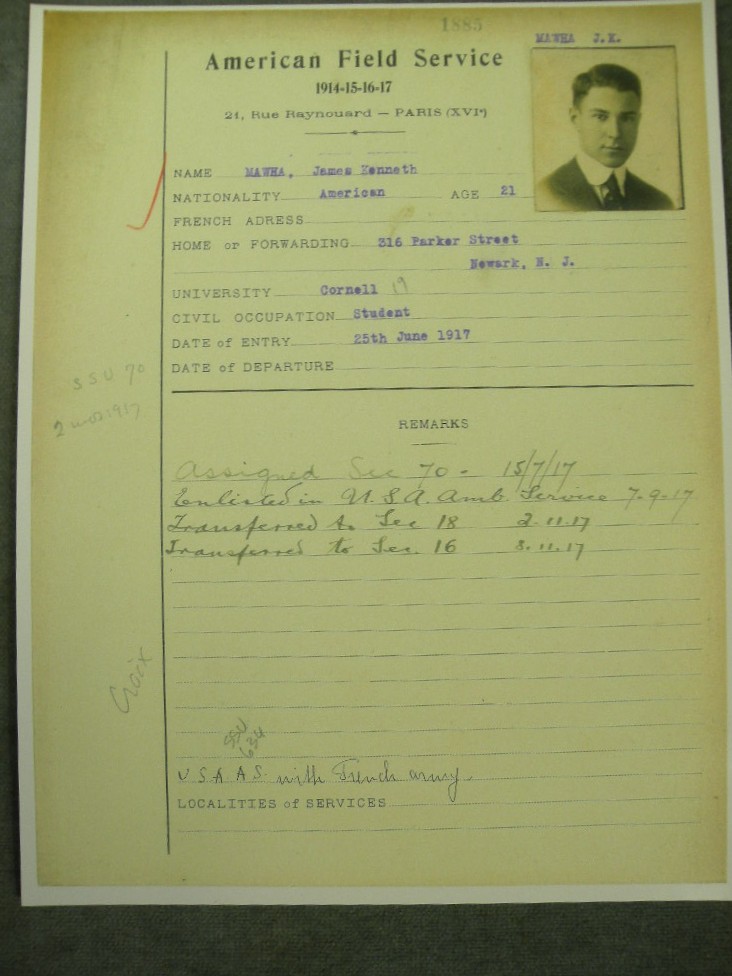 1885
MAWHA J.K.
American Field Service
1914-15-16-17
21, Rue Raynouard — PARIS (XVIe)
NAME MAWHA, James Kenneth
NATIONALITY American AGE 21
FRENCH ADRESS
HOME or FORWARDING 316 Parker Street
Newark, N. J.
UNIVERSITY Cornell 19
CIVIL OCCUPATION Student
DATE of ENTRY 25th June 1917
DATE of DEPARTURE
SSU 70
2 mos 1917
REMARKS
Assigned Sec 70 - 15/7/17
Enlisted in U.S.A. Amb. Service 7-9-17
Transferred to Sec 18 2.11.17
Transferred to Sec. 16 8.11.17
Croix
SSU
634
U S A A S with French army.
LOCALITIES of SERVICES